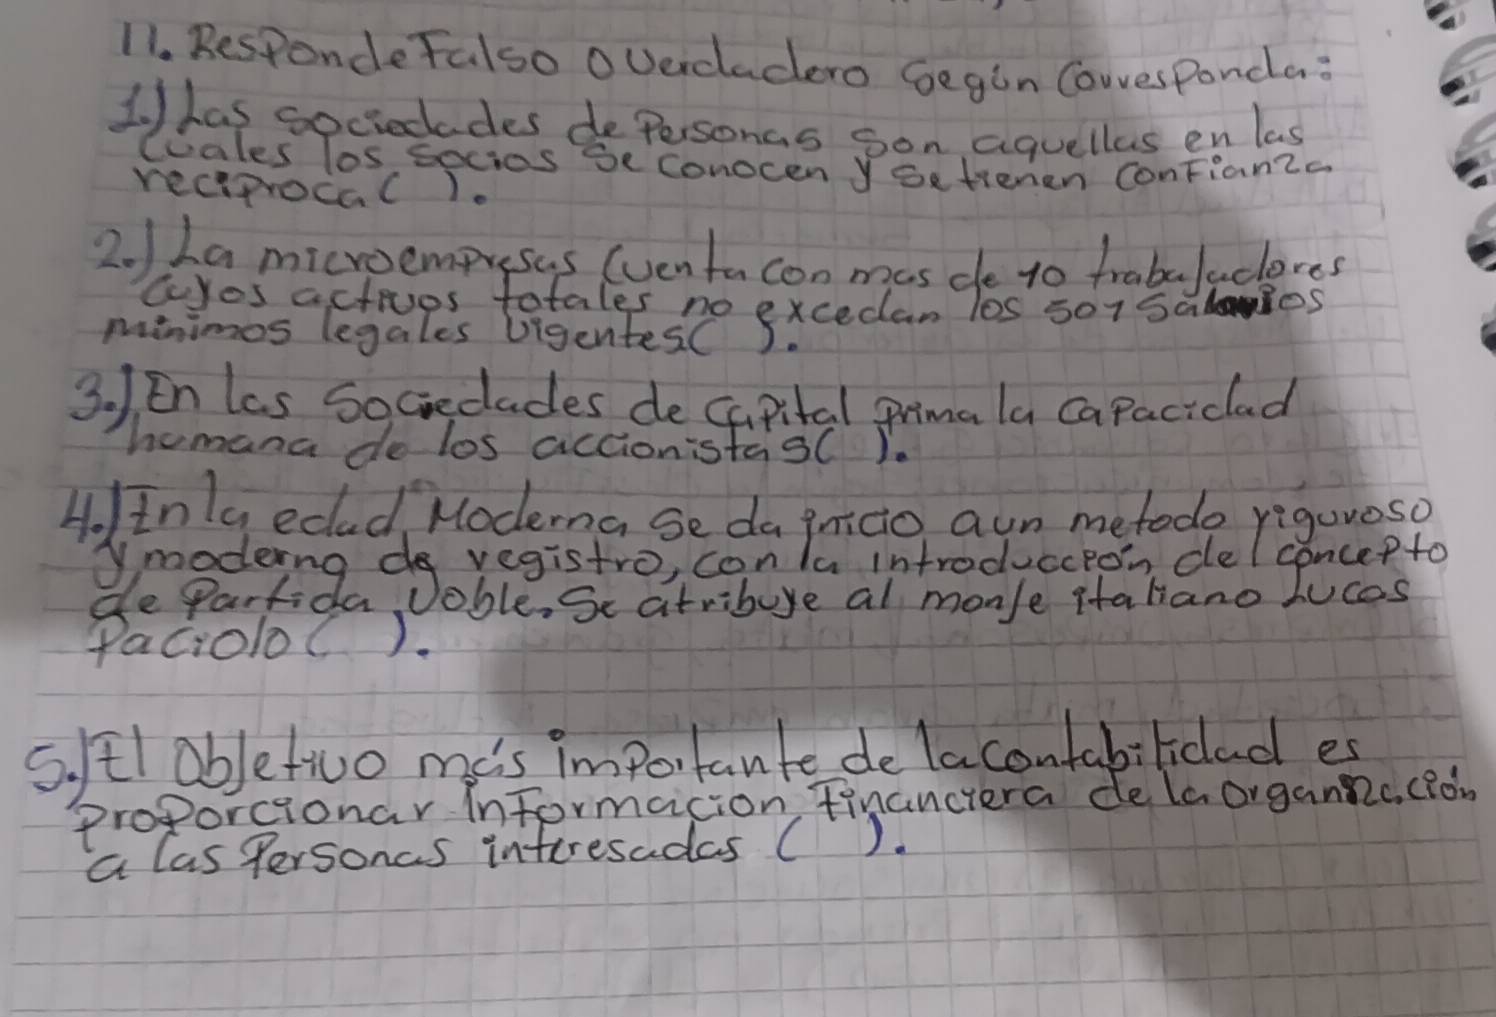 11. Responde Falso o verdadero según corresponda:
1.) Las sociedades de Personas son aquellas en las
cuales los socios se conocen y se tienen confianza
reciproca ( ).
2.) La microempresas cuenta con mas de 10 trabajadores
cuyos activos totales no excedan los 501 salarios
minimos legales vigentes ( ).
3.) En las Sociedades de capital prima la capacidad
humana de los accionistas ( ).
4.) En la edad Moderna se da inicio a un metodo riguroso
y moderno de registro, con la introducción del concepto
de Partida Doble. Se atribuye al monje italiano Lucas
Paciolo ( ).
5.) El objetivo más importante de la contabilidad es
proporcionar información financiera de la organización
a las Personas interesadas ( ).